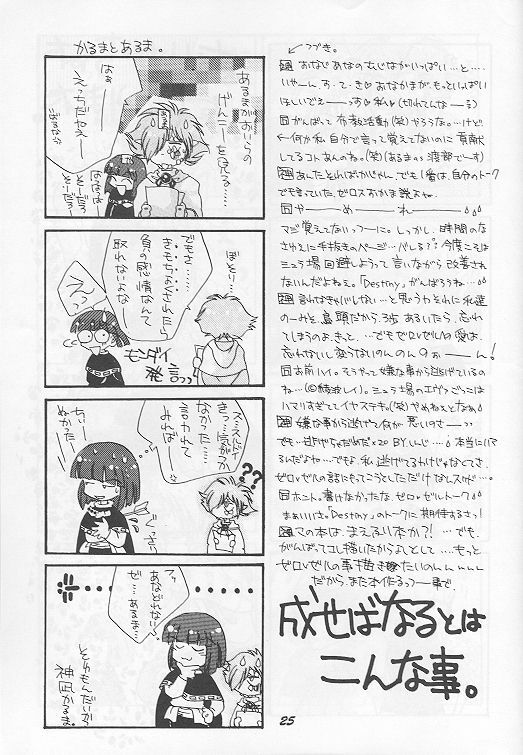 かるまとあるま。
あるまがおいらの
げんこーを見る……
はあ
えっちだねえー
ははは
とーだろ
とーだろ
ぼそり…
でもさ……
きもちなくされたら
負の感情なんて
取れないよな
えっ
モンダイ
発言っっ
ズ…ズルドイ
き…気がか
なかった……
言われて
みれば…
ちぃー
ぬかった…
ぐっさい
??
フッ
あなどれない
ぜ……あるま…
とんだもんだいが
神凪かるま。
つづき。
ほしいでえーーす♡私も(切れてんなーる)
がんばって布教活動(笑)やろうな。…けど
何か私自分で言って覚えてないのに貢献
してるコトあんのね。(笑)(あるまっつ渡部でーす)
あんたとればかじゃん、でも1番は、自分のトーク
でもきていた、ゼロスおかま説よね。
やーーめーーれーー
マジ覚えてないっつーに。しっかし、時間のな
さゆえに手抜きのページ…バレる?今度こそは
シュラ場回避しようって言いながら改善され
ないんだよねえ。「Destiny」がんばろうね…
言わなきゃバレない…と思うわそれに私達
のーみそ、鳥頭だから、3歩あるいたら忘れ
てしまうのよ、きっと…でもゼロゼルへの愛は、
忘れないし変らないのんのんのぉーーん!
お前ハイ。そうやって嫌な事から逃げているの
ね…(@綾波レイ)。シュラ場のエヴァごっこは
ハマリすぎててイヤステキ。(笑)やめねえとなあ
嫌な事から逃げて何が悪いのさーっ
でも…逃げちゃだめだ×20 BYしんじ…本当にハマ
るんだよね…でもよ、私逃げてるわけじゃなくてさ、
ゼロゼルの話にもってこうとしただけなんスけど…
ホント。書けなかったな、ゼロゼルトーク
まぁいいさ。「Destiny」のトークに期待するさっ!
この本は、まえるい本か?!…でも、
がんばってコレ描いたからよしとして…もっと
ゼロゼルの事描きたいのんんんん
だから、また本作るっつー事で、
成せばなるとは
こんな事。
25